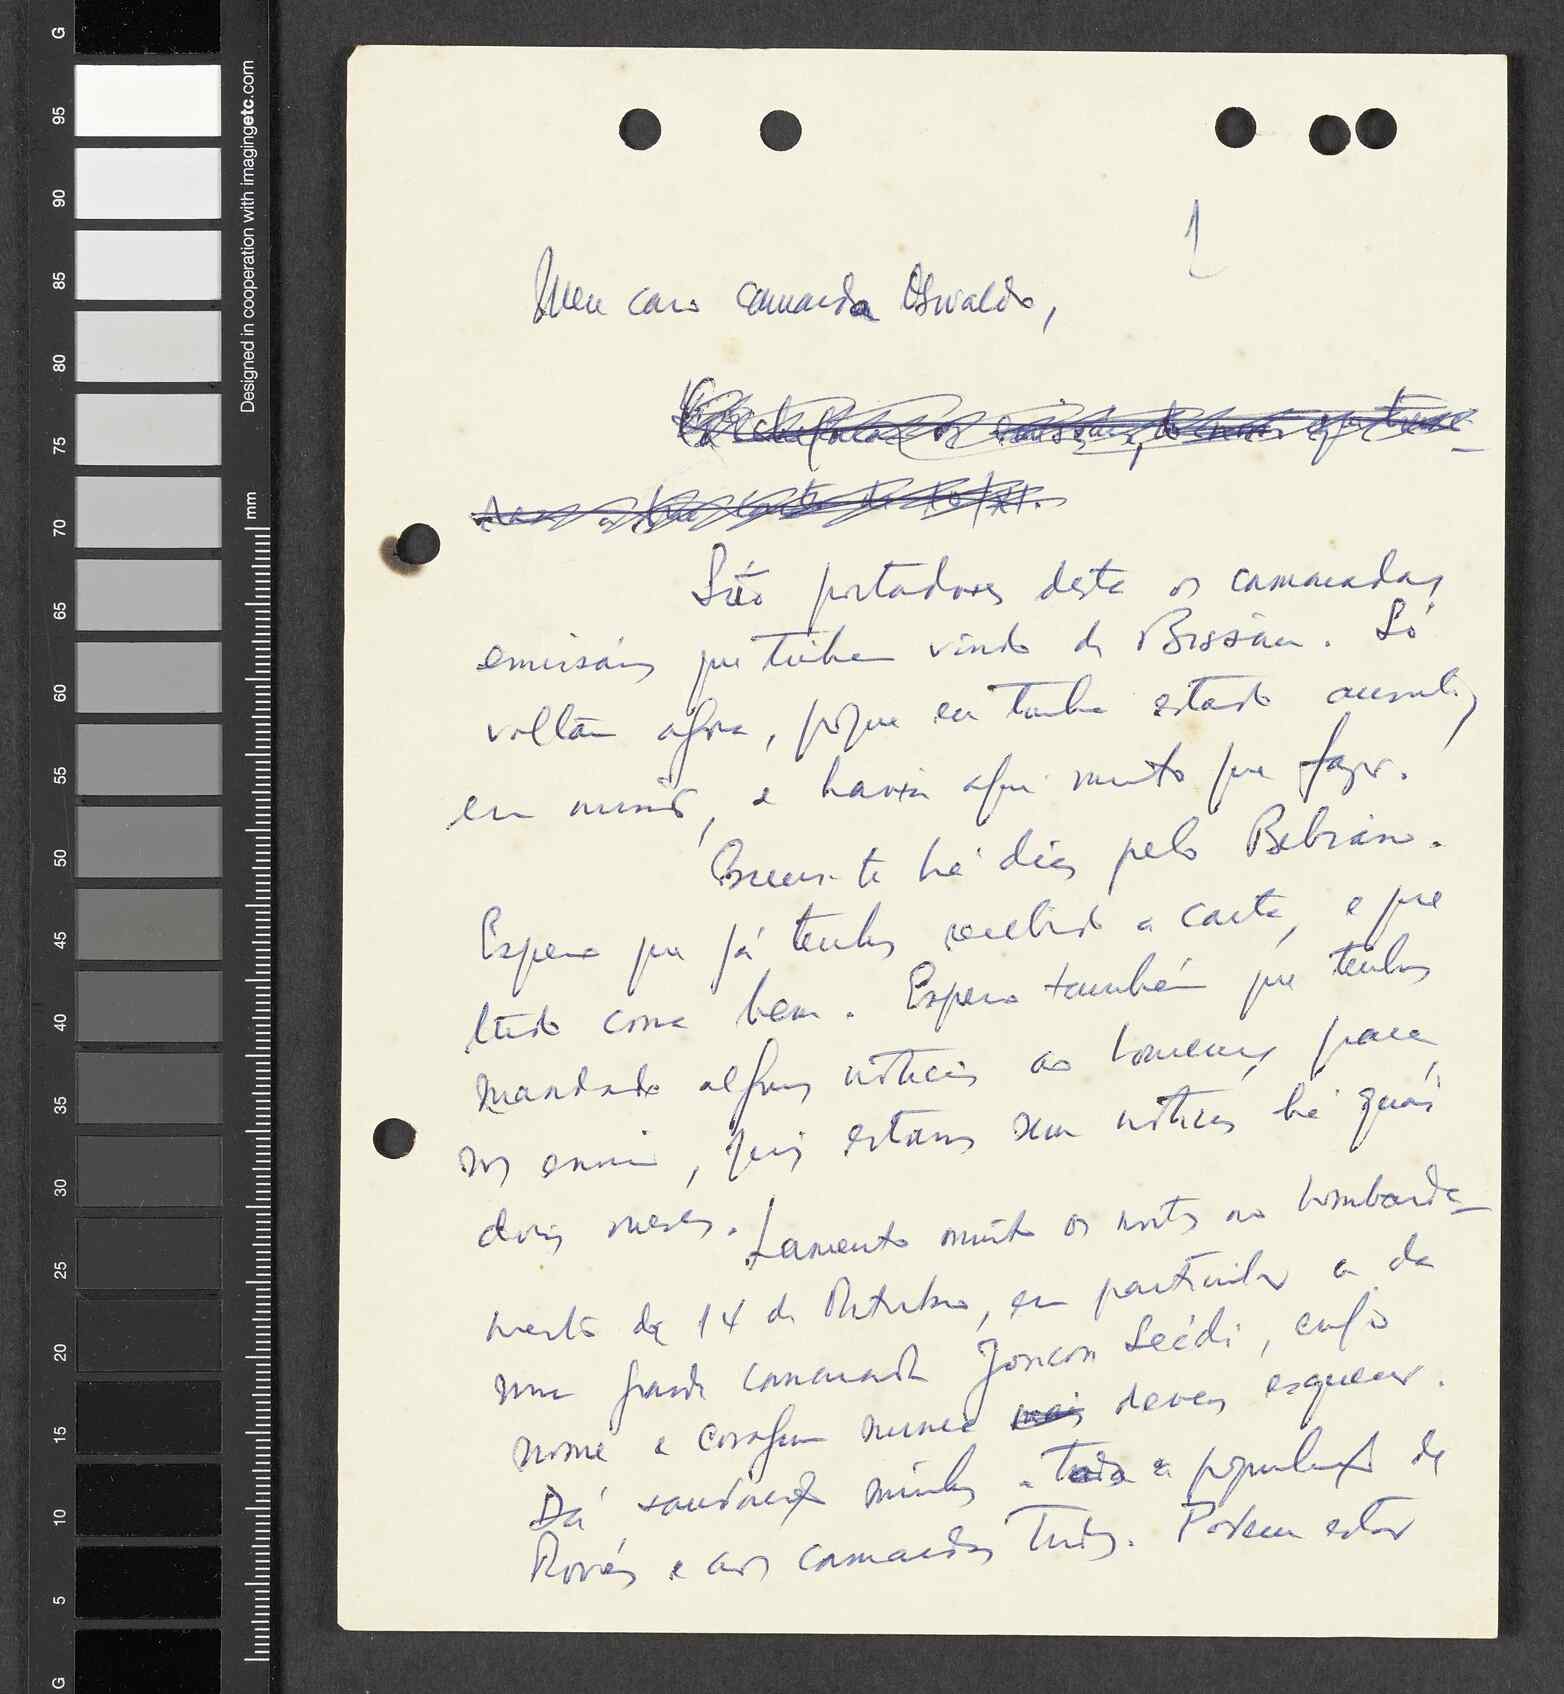 G
95
90
85
80
75
70
65
60
55
50
45
40
35
30
25
20
15
10
5
G
Designed in cooperation with imagingetc.com
mm
1
Meu caro camarada Osvaldo,
São portadores desta os camaradas
emissários que tinham vindo de Bissau. Só
voltam agora, porque eu tenho estado ausente,
em missão, e havia aqui muito que fazer.
Escrevi-te há dias pelo Bebiano.
Espero que já tenhas recebido a carta, e que
tudo corra bem. Espero também que tenhas
mandado algumas notícias ao Lourenço para
nos enviar, pois estamos sem notícias há quási
dois meses. Lamento muito os mortos no bombardea-
mento de 14 de Outubro, em particular a da
nossa grande camarada Joncon Seidi, cujo
nome e coragem nunca devemos esquecer.
Dá saudações minhas a toda a população de
Morés e aos camaradas todos. Podem estar